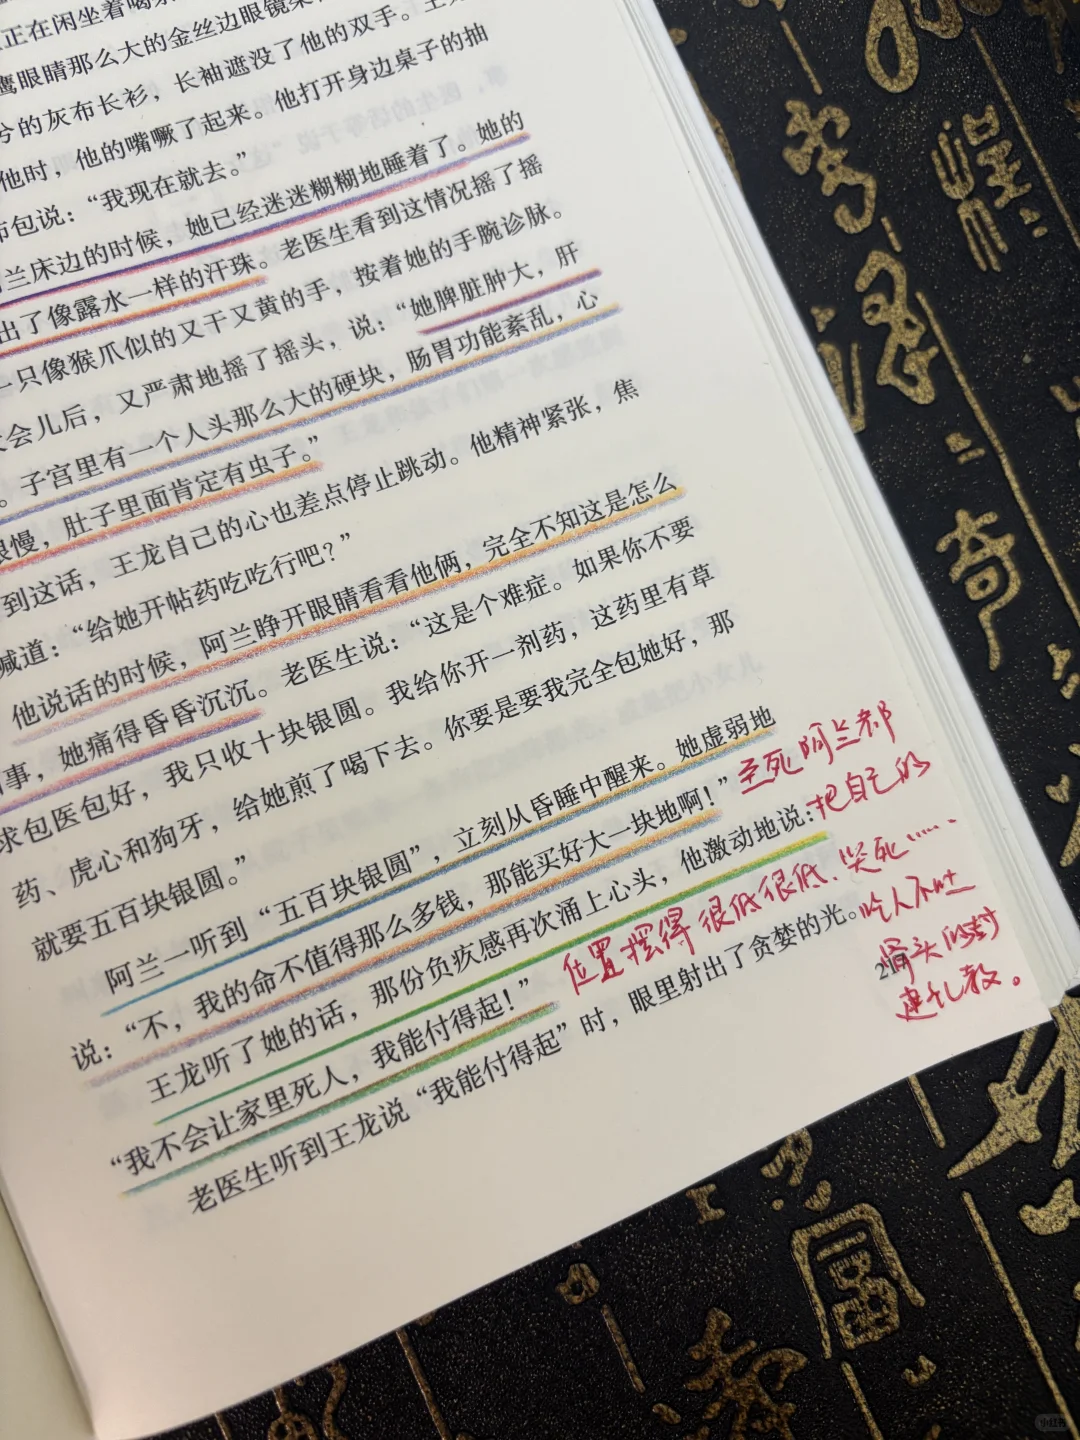 正在闲坐着喝
鹰眼睛那么大的金丝边眼镜架
兮的灰布长衫，长袖遮没了他的双手。王
他时，他的嘴噘了起来。他打开身边桌子的抽
布包说：“我现在就去。”
兰床边的时候，她已经迷迷糊糊地睡着了。她的
出了像露水一样的汗珠。老医生看到这情况摇了摇
一只像猴爪似的又干又黄的手，按着她的手腕诊脉。
会儿后，又严肃地摇了摇头，说：“她脾脏肿大，肝
。子宫里有一个人头那么大的硬块，肠胃功能紊乱，心
很慢，肚子里面肯定有虫子。”
到这话，王龙自己的心也差点停止跳动。他精神紧张，焦
喊道：“给她开帖药吃吃行吧？”
他说话的时候，阿兰睁开眼睛看看他俩，完全不知这是怎么
事，她痛得昏昏沉沉。老医生说：“这是个难症。如果你不要
求包医包好，我只收十块银圆。我给你开一剂药，这药里有草
药、虎心和狗牙，给她煎了喝下去。你要是要我完全包她好，那
就要五百块银圆。”
阿兰一听到“五百块银圆”，立刻从昏睡中醒来。她虚弱地
说：“不，我的命不值得那么多钱，那能买好大一块地啊！”
王龙听了她的话，那份负疚感再次涌上心头，他激动地说：
“我不会让家里死人，我能付得起！”
老医生听到王龙说“我能付得起”时，眼里射出了贪婪的光。
至死阿兰都
把自己的
位置摆得很低很低、哭死……
吃人不吐
骨头的封
建礼教。